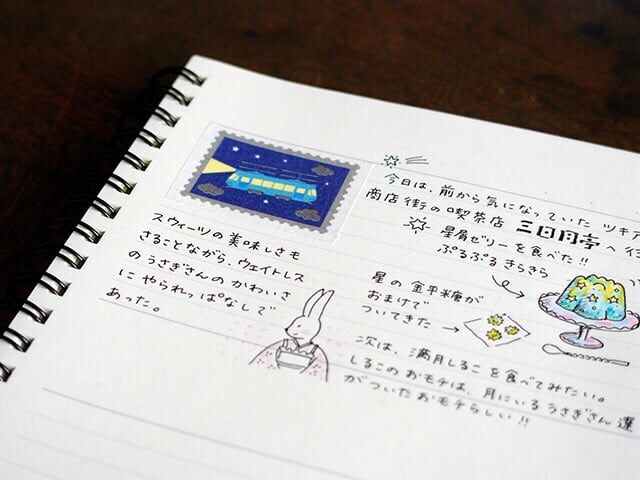 今日は、前から気になっていた ツキア
商店街の喫茶店 三日月亭 へ行
星屑ゼリーを食べた!!
ぷるぷる きらきら
星の 金平糖が
おまけで
ついてきた
スウィーツの美味しさも
さることながら、ウェイトレス
のうさぎさんのかわいさ
に やられっぱなしで
あった。
次は、満月しるこ を食べてみたい。
しるこのおモチは、月にいるうさぎさん達
がついたおモチらしい!!